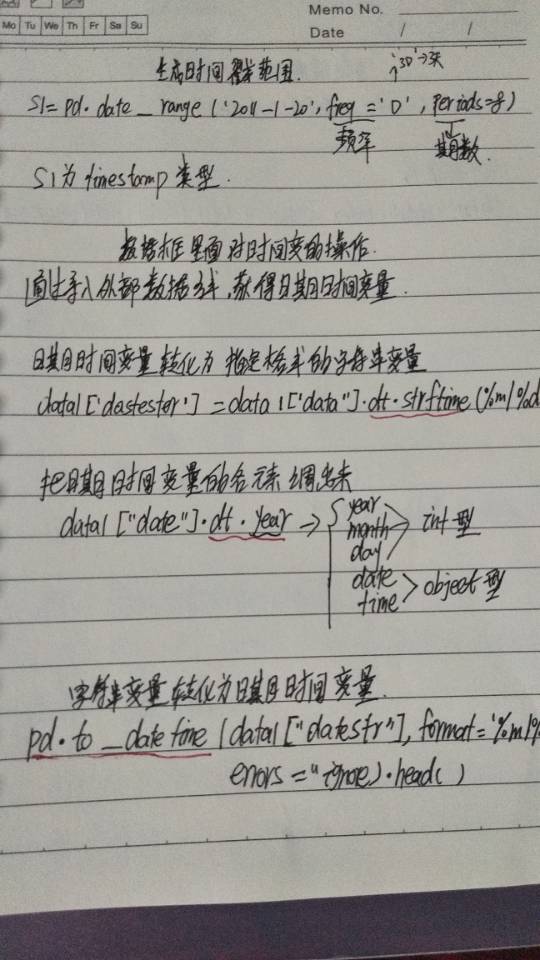 Memo No.
Mo Tu We Th Fr Sa Su
Date / /
生成时间戳范围.
↑'3D'→3天
S1=pd.date_range('2011-1-20',freq='D',periods=8)
频率 期数.
S1为timestamp类型.
数据框里面对时间变的操作.
通过导入外部数据,获得日期日时间变量.
日期日时间变量转化为指定格式的字符串变量
data1['dastester']=data1['data"].dt.strftime(%m/%d
把日期日时间变量的各元素调出来
data1["date"].dt.year→
year
month
day
int型
date
time
object型
字符串变量转化为日期日时间变量.
pd.to_datetime(data1["datestr"],format='%m/%
errors="ignore).head()